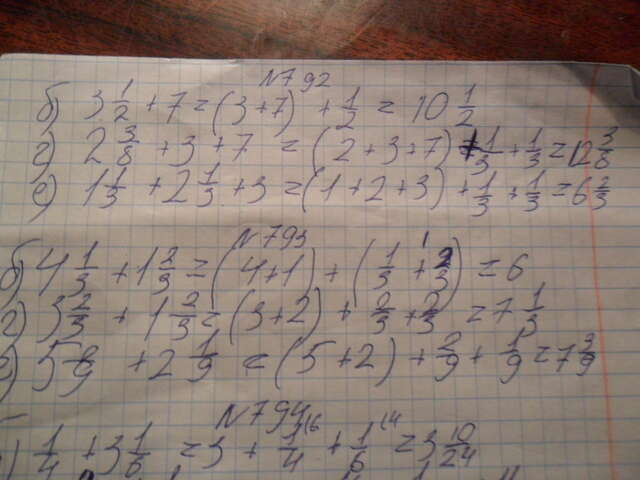 №792
б) 3 1/2 + 7 = (3+7) + 1/2 = 10 1/2
г) 2 3/8 + 3 + 7 = (2+3+7) + 1/3 + 1/3 = 12 3/8
е) 1 1/3 + 2 1/3 + 3 = (1+2+3) + 1/3 + 1/3 = 6 2/3
№793
б) 4 1/3 + 1 2/3 = (4+1) + (1/3 + 2/3) = 6
г) 3 2/3 + 1 2/3 = (3+2) + 2/3 + 2/3 = 7 1/3
е) 5 + 2 1/9 = (5+2) + 2/9 + 1/9 = 7 3/9
№794
1/4 + 3 1/6 = 3 + 1/4 (6 + 1/6 (4 = 3 10/24